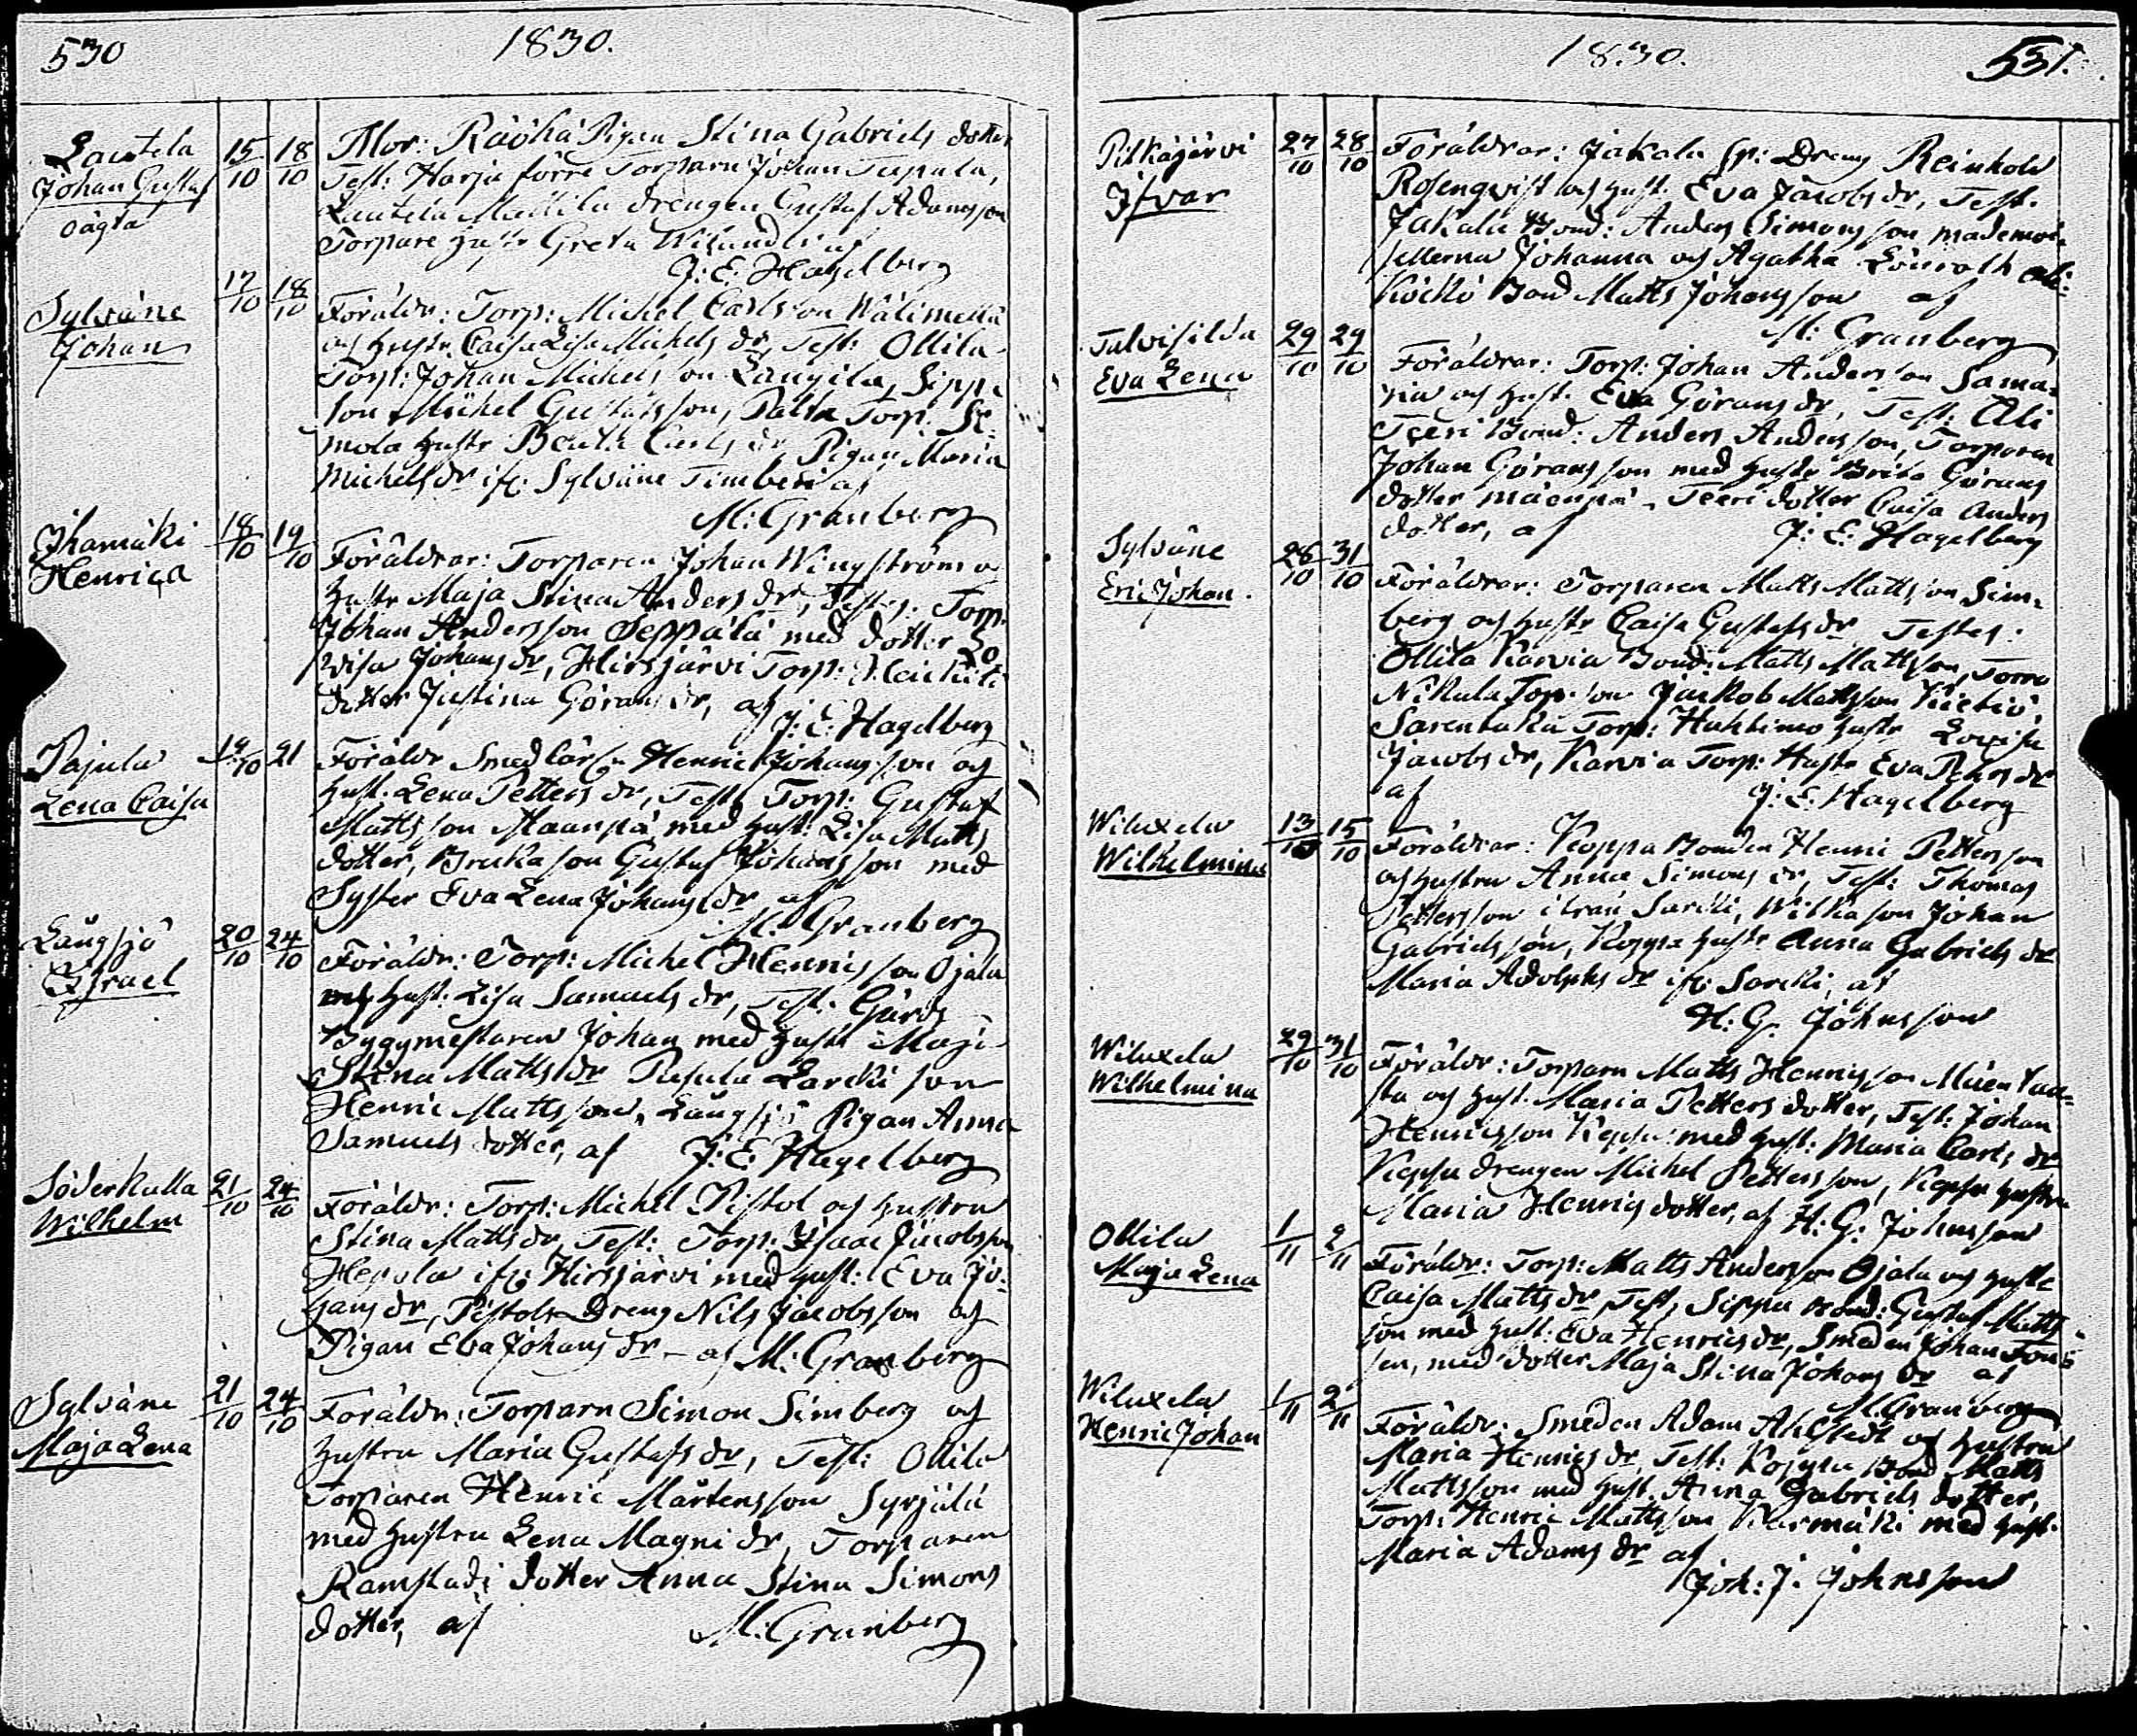 530
1830.
Lautela
Johan Gustaf
oägta
15/10
18/10
Mor: Räöhä Pigan Stina Gabriels dotter
Test: Harju förre Torparn Johan Tupala,
Lautela Mattila drengen Gustaf Adamsson
Torpare hustr Greta
J: E: Hagelberg
Sylväne
Johan
17/10
18/10
Föräldr: Torp: Michel Carlsson Wälimettä
och hustr. Caisa Lisa Michels dr, Test: Ollila
Torp: Johan Michelsson Laurila, Sippa
son Michel Gustafsson, Torp:
mola hustr Beata Carls dr, Pigan Maria
Michels dr ifr: Sylväne Timberi af
M: Granberg
Ihamäki
Henrica
18/10
19/10
Föräldrar: Torparen Johan Wingström o
hustr Maja Stina Anders dr, Testes: Torp
Johan Andersson Seppälä med dotter Lo
wisa Johans dr, Hirsjärvi Torp: Heikkilä
dotter Justina Görans dr, af
J: E: Hagelberg
Pajula
Lena Caisa
19/10
21
Föräldr Smed Henric Johansson och
hust. Lena Petters dr, Test: Torp: Gustaf
Mattsson Maanpä med hust: Lisa Matts
dotter, son Gustaf Johansson med
Syster Eva Lena Johans dr af
M: Granberg
Långsjö
Israel
20/10
24/10
Föräldr: Torp: Michel Henricsson Ojala
och hust: Lisa Samuels dr, Test: Gärds
Byggmestaren Johan med hustr Maja
Stina Matts dr Pusula Larcki son
Henric Mattsson, Långsjö Pigan Anna
Samuels dotter, af J: E: Hagelberg
Söderkulla
Wilhelm
21/10
24/10
Föräldr: Torp: Michel Pistol och hustru
Stina Matts dr, Test: Torp: Isaac Jacobsson
Hepola ifr: Hirsjärvi med hust: Eva Jo-
hans dr, Pistola Dreng Nils Jacobsson och
Pigan Eva Johans dr – af M: Granberg
Sylväne
Maja Lena
21/10
24/10
Föräldr: Torparn Simon Simberg och
hustru Maria Gustafs dr, Test: Ollila
Torparen Henric Mårtensson Syrjälä
med hustru Lena Magni dr, Torparen
Ramstadi dotter Anna Stina Simons
dotter, af M: Granberg
1830.
531.
Pitkäjärvi
Ifvar
27/10
28/10
Föräldrar: Jakala sp: Dreng Reinhold
Rosenqvist och hust. Eva Jacobs dr, Test.
Jakala Bond: Anders Simonsson mademoi-
sellerna Johanna och Agatha Lönroth
Köckö Bond Matts Johansson af
M: Granberg
Talvisilda
Eva Lena
29/10
29/10
Föräldrar: Torp: Johan Andersson Sama-
ria och hust. Eva Görans dr, Test: Ali
Teeri Bond: Anders Andersson, Torparen
Johan Göransson med hustr Brita Görans
dotter mäenpä – Teeri dotter Caisa Anders
dotter, af J: E: Hagelberg
Sylväne
Eric Johan.
28/10
31/10
Föräldrar: Torparen Matts Mattsson Sim-
berg och hustr Caisa Gustafs dr Testes:
Ollila Karvia Bond: Matts Mattsson, Torro
Nikula Torp. son Jackob Mattsson
Sarentaka Torp: Huhtimo hustr Lovisa
Jacobs dr, Karvia Torp: Hustr Eva Pehrs dr
af J: E: Hagelberg
Wiluxela
Wilhelmina
13/10
15/10
Föräldrar: Koppa Bonden Henric Pettersson
och hustru Anna Simons dr, Test: Thomas
Pettersson ifrån Sarcki, Wilka son Johan
Gabrielsson, Koppa hustr Anna Gabriels dr
Maria Adolphs dr ifr: Sarcki, af
H: G: Johnsson
Wiluxela
Wilhelmina
29/10
31/10
Föräldr: Torparn Matts Henricsson Mäentaa-
sta och hust. Maria Petters dotter, Test: Johan
Henricsson med hust: Maria Carls dr
drengen Michel Pettersson, hustru
Maria Henrics dotter, af H: G: Johnsson
Ollila
Maja Lena
1/11
2/11
Föräldr: Torp: Matts Andersson Ojala och hustr
Caisa Matts dr Test, Sippa Bond: Gustaf Matts
son med hust: Eva Henrics dr, Smeden Johan
sen, med dotter Maja Stina Johans dr af
M: Granberg
Wiluxela
Henric Johan
1/11
2/11
Föräldr: Smeden Adam Ahlstedt och hustru
Maria Henrics dr, Test: Koppa Bond Matts
Mattsson med hust. Anna Gabriels dotter,
Torp: Henric Mattsson med hust.
Maria Adams dr af
Joh: J. Johnsson